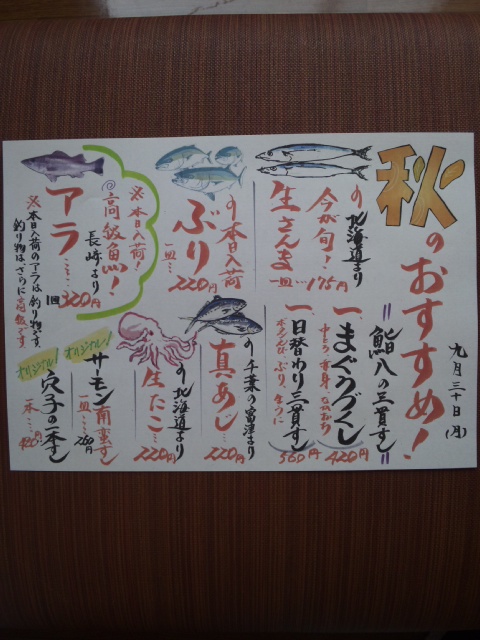 秋のおすすめ！
九月三十日(月)
の北海道より
今が旬！
生さんま
一皿…175円
の本日入荷
ぶり
一皿…220円
※本日入荷！
@高級魚！
長崎より
アラ……320円
1皿
※本日入荷のアラは釣り物です。
釣り物は、さらに高級です。
鮨八の三貫すし
一、まぐろづくし
420円
一、日替わり三貫すし
ぶり、
560円
の千葉の富津より
真あじ…220円
の北海道より
生たこ…220円
オリジナル！
サーモン南蛮すし
一皿…260円
オリジナル！
穴子の一本すし
一本…420円